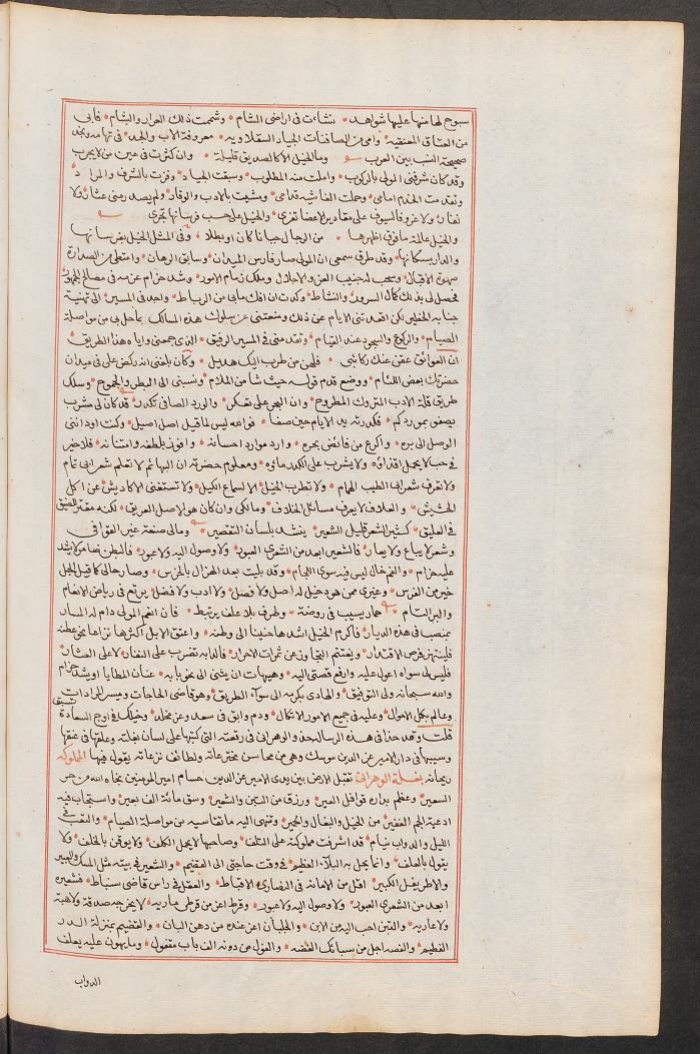 سبوح لها منها عليها شواهد · نشأت في اراضي الشام · وشممت ذلك العرار والبشام · فأبي
من العتاق المعنقيه · وامي من الصافنات الجياد السقلاويه · معروفة الاب والجد · في تهامه ونجد
صحيحة النسب بين العرب · وما الخيل الا كالصديق قليلة · وان كثرت في عين من لا يجرب
وقد كان شرفني المولى بالركوب · واملت منه المطلوب · وسبقت الجياد · وفزت بالشرف والمراد
وتقدمت الخدم امامي · وحملت الغاشيه قدامي · ومشيت بالادب والوقار · ولم يصدر مني عثار ولا
نفار · ولا غرو فالسيوف على مقادير الاعضا تفري · والخيل على حسب فرسانها تجري
والخيل عالمة ما فوق اظهرها · من الرجال جبانا كان او بطلا · وفي المثل الخيل اعرف بفرسانها
والدار بسكانها · وقد طرق سمعي ان المولى صار فارس الميدان · وسابق الرهان · وامتطى من الصدارة
صهوة الاقبال · وسحب له جنيب العز والاجلال · وملك زمام الامور · وشد حزام عزمه في مصالح الجمهور
فحصل لي بذلك كمال السرور والنشاط · وكدت ان افك ما بي من الرباط · واجد في المسير · الى تهنية
جنابه الخطير لكن اقعدتني الايام عن ذلك ومنعتني عن سلوك هذه المسالك بما حل بي من مواصلة
الصيام · والركوع والسجود عند القيام · وتقدمني في السير الرفيق · الذي جمعني واياه هذا الطريق
ان العوائق عقن عنك ركائبي · فلهن من طرب اليك هديل · وكان بلغني انه ركض علي في ميدان
حضرتك بعض اللئام · ووضع قدم قوله حيث شا من الملام · ونسبني الى البطر والجموح · وسلك
طريق قلة الادب المتروك المطروح · وان البحر على تعكر · والورد الصافي تكدر · قد كان لي مشرب
يصفو بموردكم · فكدرته يد الايام حين صفا · فراعه ليس لما قيل اصل اصيل · وكنت اود انني
الوصل الى بره · واكرع من فائض بحره · وارد موارد احسانه · وافوز بلطفه وامتنانه · فلا خير
في حب لا يحمل اقذاؤه ولا يشرب على الكدر ماؤه · ومعلوم حضرته ان البهائم لا تعلم شعر ابي تمام
ولا تعرف شعر ابي الطيب الهمام · ولا تطرب الخيل الا لسماع الكيل · ولا تستغني الاكاديش عن اكل
الحشيش · والعلاف لا يعرف مسائل الخلاف · ومالكي وان كان هو الاصل العريق · لكنه مقتر الضيق
في العليق · كثير الشعر قليل الشعير · ينشد بلسان التقصير · ومالي صنعة غير القوافي
وشعر لا يباع ولا يعار · فالشعير ابعد من الشعرى العبور · ولا وصول اليه ولا عبور · فالبطن ضامر لا يشد
عليه حزام · والفم خال ليس فيه سوى اللجام · وقد بليت بعد الهزال بالخرس · وصار حالي كما قيل الجل
خير من الفرس · وغيري ممن هو دخيل له اصل ولا فصل · ولا ادب ولا فضل · يرتع في رياض الانعام
والبر التام · حمار يسيب في روضة · وطرف بلا علف يرتبط · فان انعم المولى دام له المسار
بمنصب في هذه الديار · فاكرم الخيل اشدها حنينا الى وطنه · واعتق الابل اكثرها نزاعا نحو عطنه
فلينتهز فرص الاقتدار · ويغتنم التجاوز عن عثرات الاحرار · فالدابه تضرب على النفار لا على العثار
فليس لي سواه اعول عليه وارفع قصتي اليه · وهيهات ان يثنى الى نحو بابه · عنان المطايا او يشد حزام
والله سبحانه ولي التوفيق · والهادي بكرمه الى سوآء الطريق · وهو قاضي الحاجات وميسر المرادات
وعالم بكل الاحوال · وعليه في جميع الامور الاتكال · ودم وابق في سعد وعز مخلد · وخيلك في اوج السعادة تستبق
قلت وقد حذا في هذه الرسالة حذو الوهراني في رقعته التي كتبها على لسان بغلته وعلقها في عنقها
وسيبها في دار الامير عز الدين موسك وهي من محاسن مخترعاته ولطائف نزعاته يقول فيها المملوكه
ريحانه بغلة الوهراني تقبل الارض بين يدي الامير عز الدين حسام امير المومنين نجاه الله من حر
السعير · وعظم بذكره قوافل العير · ورزق من التبن والشعير · وسق مائة الف بعير · واستجاب فيه
ادعية الجم الغفير · من الخيل والبغال والحمير · وتنهي اليه ما تقاسيه من مواصلة الصيام · والتعب في
الليل والدواب نيام · قد اشرفت مملوكته على التلف · وصاحبها لا يحمل الكلف · ولا يوقن بالخلف · ولا
يقول بالعلف · وانما يحل به البلاء العظيم · في وقت حاجتي الى القضيم · والشعير في بيته مثل المسك والعبير
والاطريفل الكبير · اقل من الامانه في النصارى الاقباط · والعقل في راس قاضي سنباط · فشعيره
ابعد من الشعرى العبور · ولا وصول اليه ولا عبور · وقرطه اعز من قرطي ماريه · لا يخرجه صدقة ولا هبة
ولا عاريه · والتبن احب اليه من الابن · والجلبان اعز عنده من دهن البان · والقضيم بمنزلة الدر
النظيم · والفصه اجل من سبائك الفضه · والفول من دونه الف باب مقفول · وما يهون عليه يعلف
الدواب